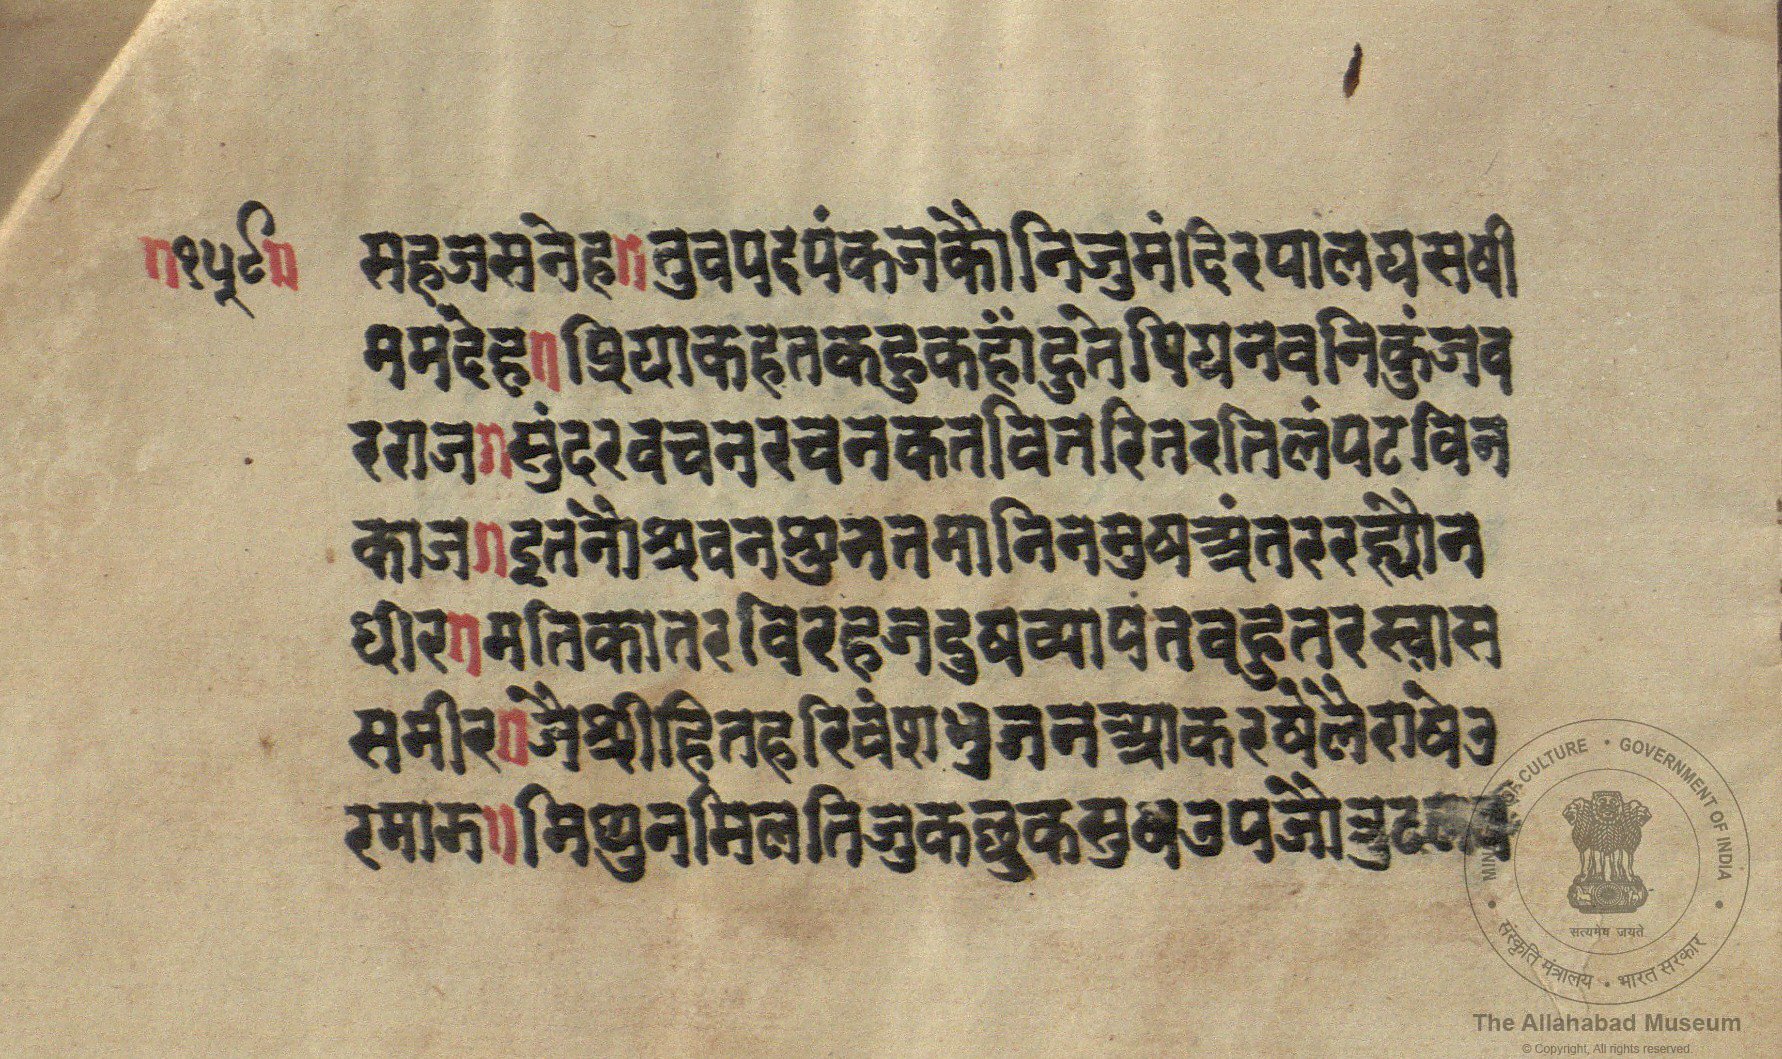 ॥१५९॥
महजसनेह॥तुवपदपंकजकौनिजुमंदिरपालयसषी
ममदेह॥प्रियाकहतकहुकहांदुतेपियनवनिकुंजव
रराज॥सुंदरवचनरचनकतवितरितरतिलंपटविन
काज॥इतनौश्रवनसुनतमानिनमुषअंतररह्यौन
धीर॥मतिकातरविरहजदुषव्यापंतवहुतरस्वास
समीर॥जैश्रीहितहरिवंशभुजनआकरषेलैराषेउ
रमाझ॥मिथुनमिलतिजुकछुकसुषउपजौत्रुट
MINISTRY OF CULTURE • GOVERNMENT OF INDIA
सत्यमेव जयते
संस्कृति मंत्रालय • भारत सरकार
The Allahabad Museum
© Copyright, All rights reserved.